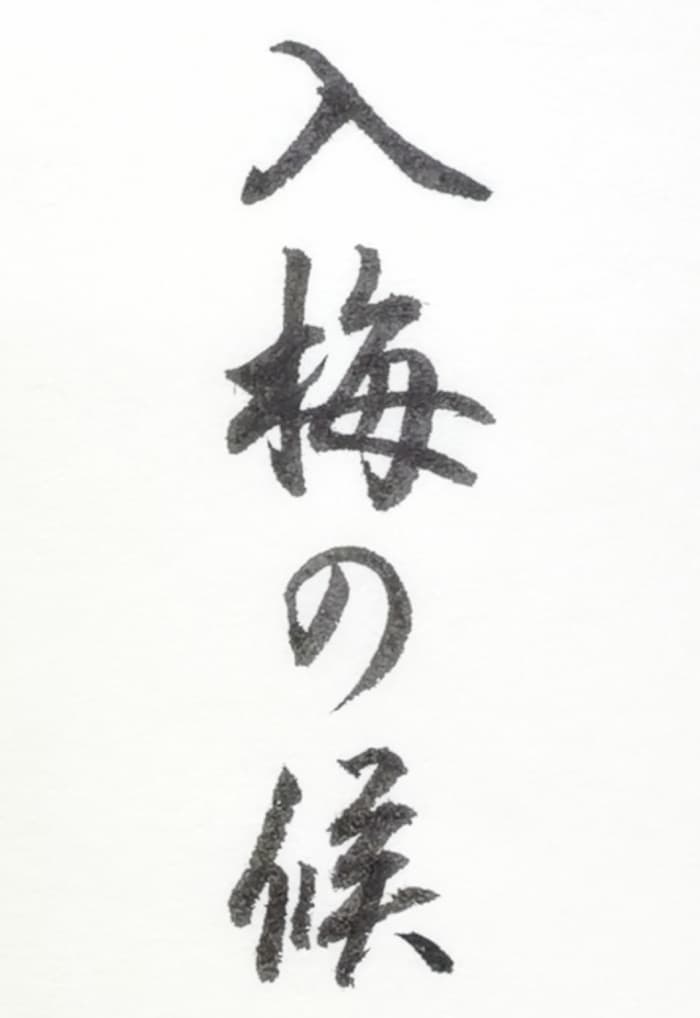 入梅の候